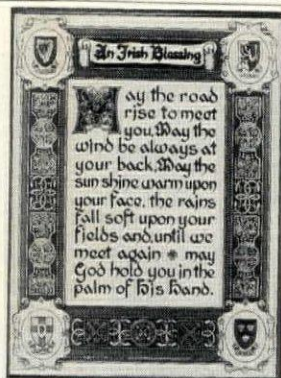 An Irish Blessing
May the road
rise to meet
you. May the
wind be always at
your back, May the
sun shine warm upon
your face, the rains
fall soft upon your
fields and, until we
meet again may
God hold you in the
palm of His Hand.